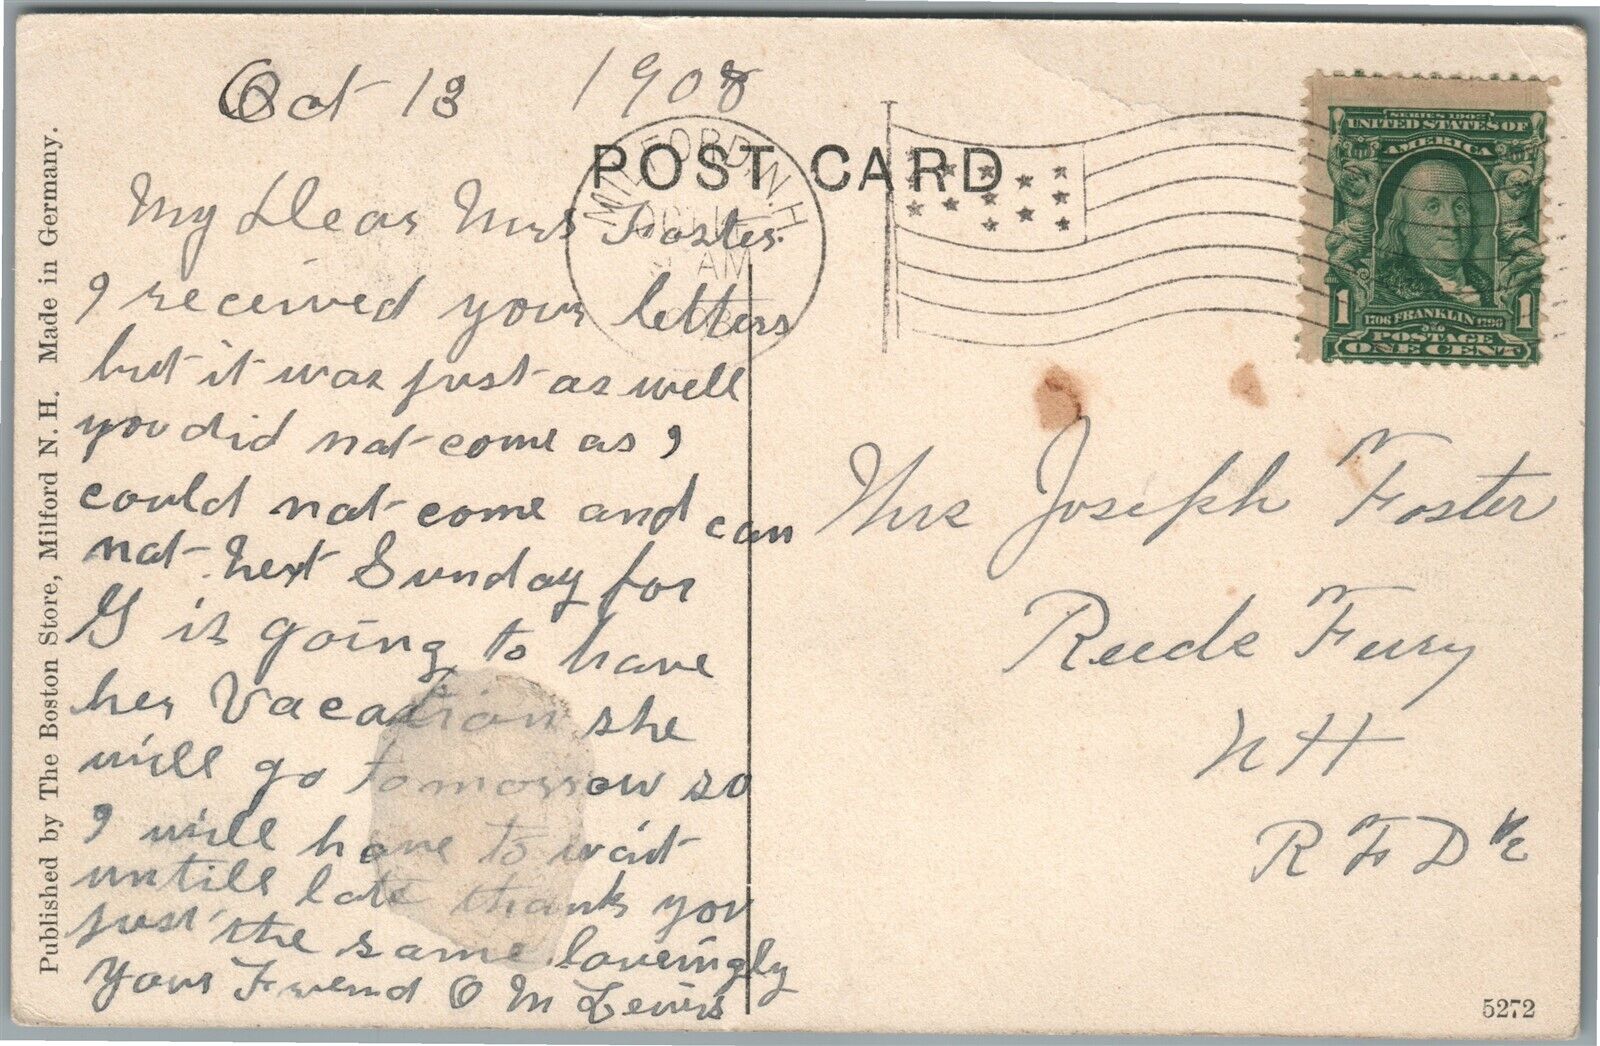 Oct 13 1908
POST CARD
MILFORD, N.H.
OCT
AM
My Dear Mrs Foster.
I received your letters
but it was just as well
you did not come as I
could not come and can
not next Sunday for
G is going to have
her Vacation she
will go tomorrow so
I will have to wait
untill late thank you
just the same loveingly
your Friend O M Lewis
Published by The Boston Store, Milford N. H. Made in Germany.
SERIES 1902
UNITED STATES OF
AMERICA
1 1
1706 FRANKLIN 1790
POSTAGE
ONE CENT
Mrs Joseph Foster
Reeds Fury
N H
R F D
5272